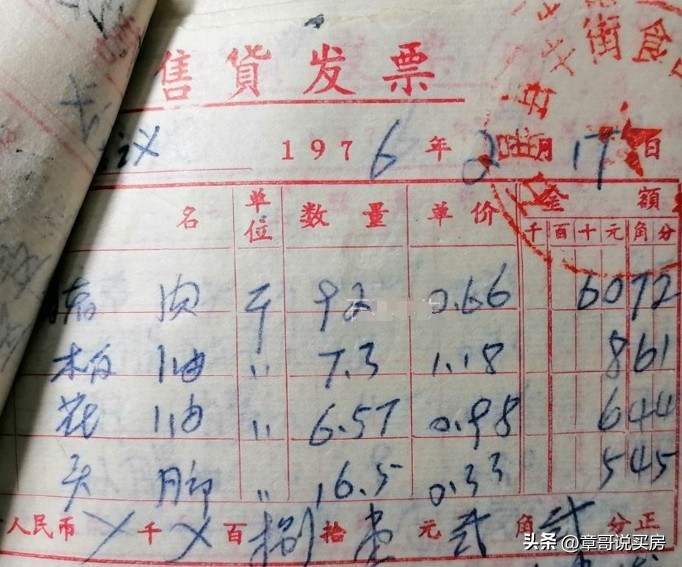 售貨发票
议 1976年2月17日
名 单位 数量 单价 金額
千百十元角分
肉 斤 92 0.66 6072
油 〃 7.3 1.18 861
花油 〃 6.57 0.98 644
头脚 〃 16.5 0.33 545
人民币 X千X百捌拾壹元弍角弍分正
街食
头条 @章哥说买房